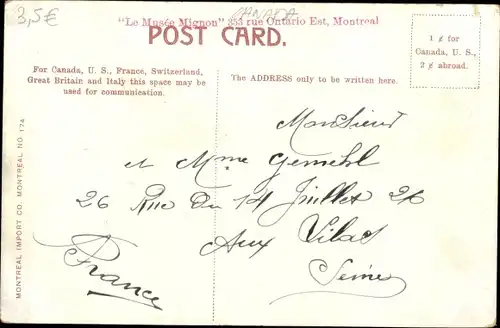 3,5€
CANADA
"Le Musée Mignon" 353 rue Ontario Est, Montreal
POST CARD.
1 ¢ for
Canada, U. S.,
2 ¢ abroad.
For Canada, U. S., France, Switzerland,
Great Britain and Italy this space may be
used for communication.
The ADDRESS only to be written here.
MONTREAL IMPORT CO. MONTREAL NO 174
Monsieur
et Mme
26 Rue Du 14 Juillet 26
Aux Lilas
Seine
France